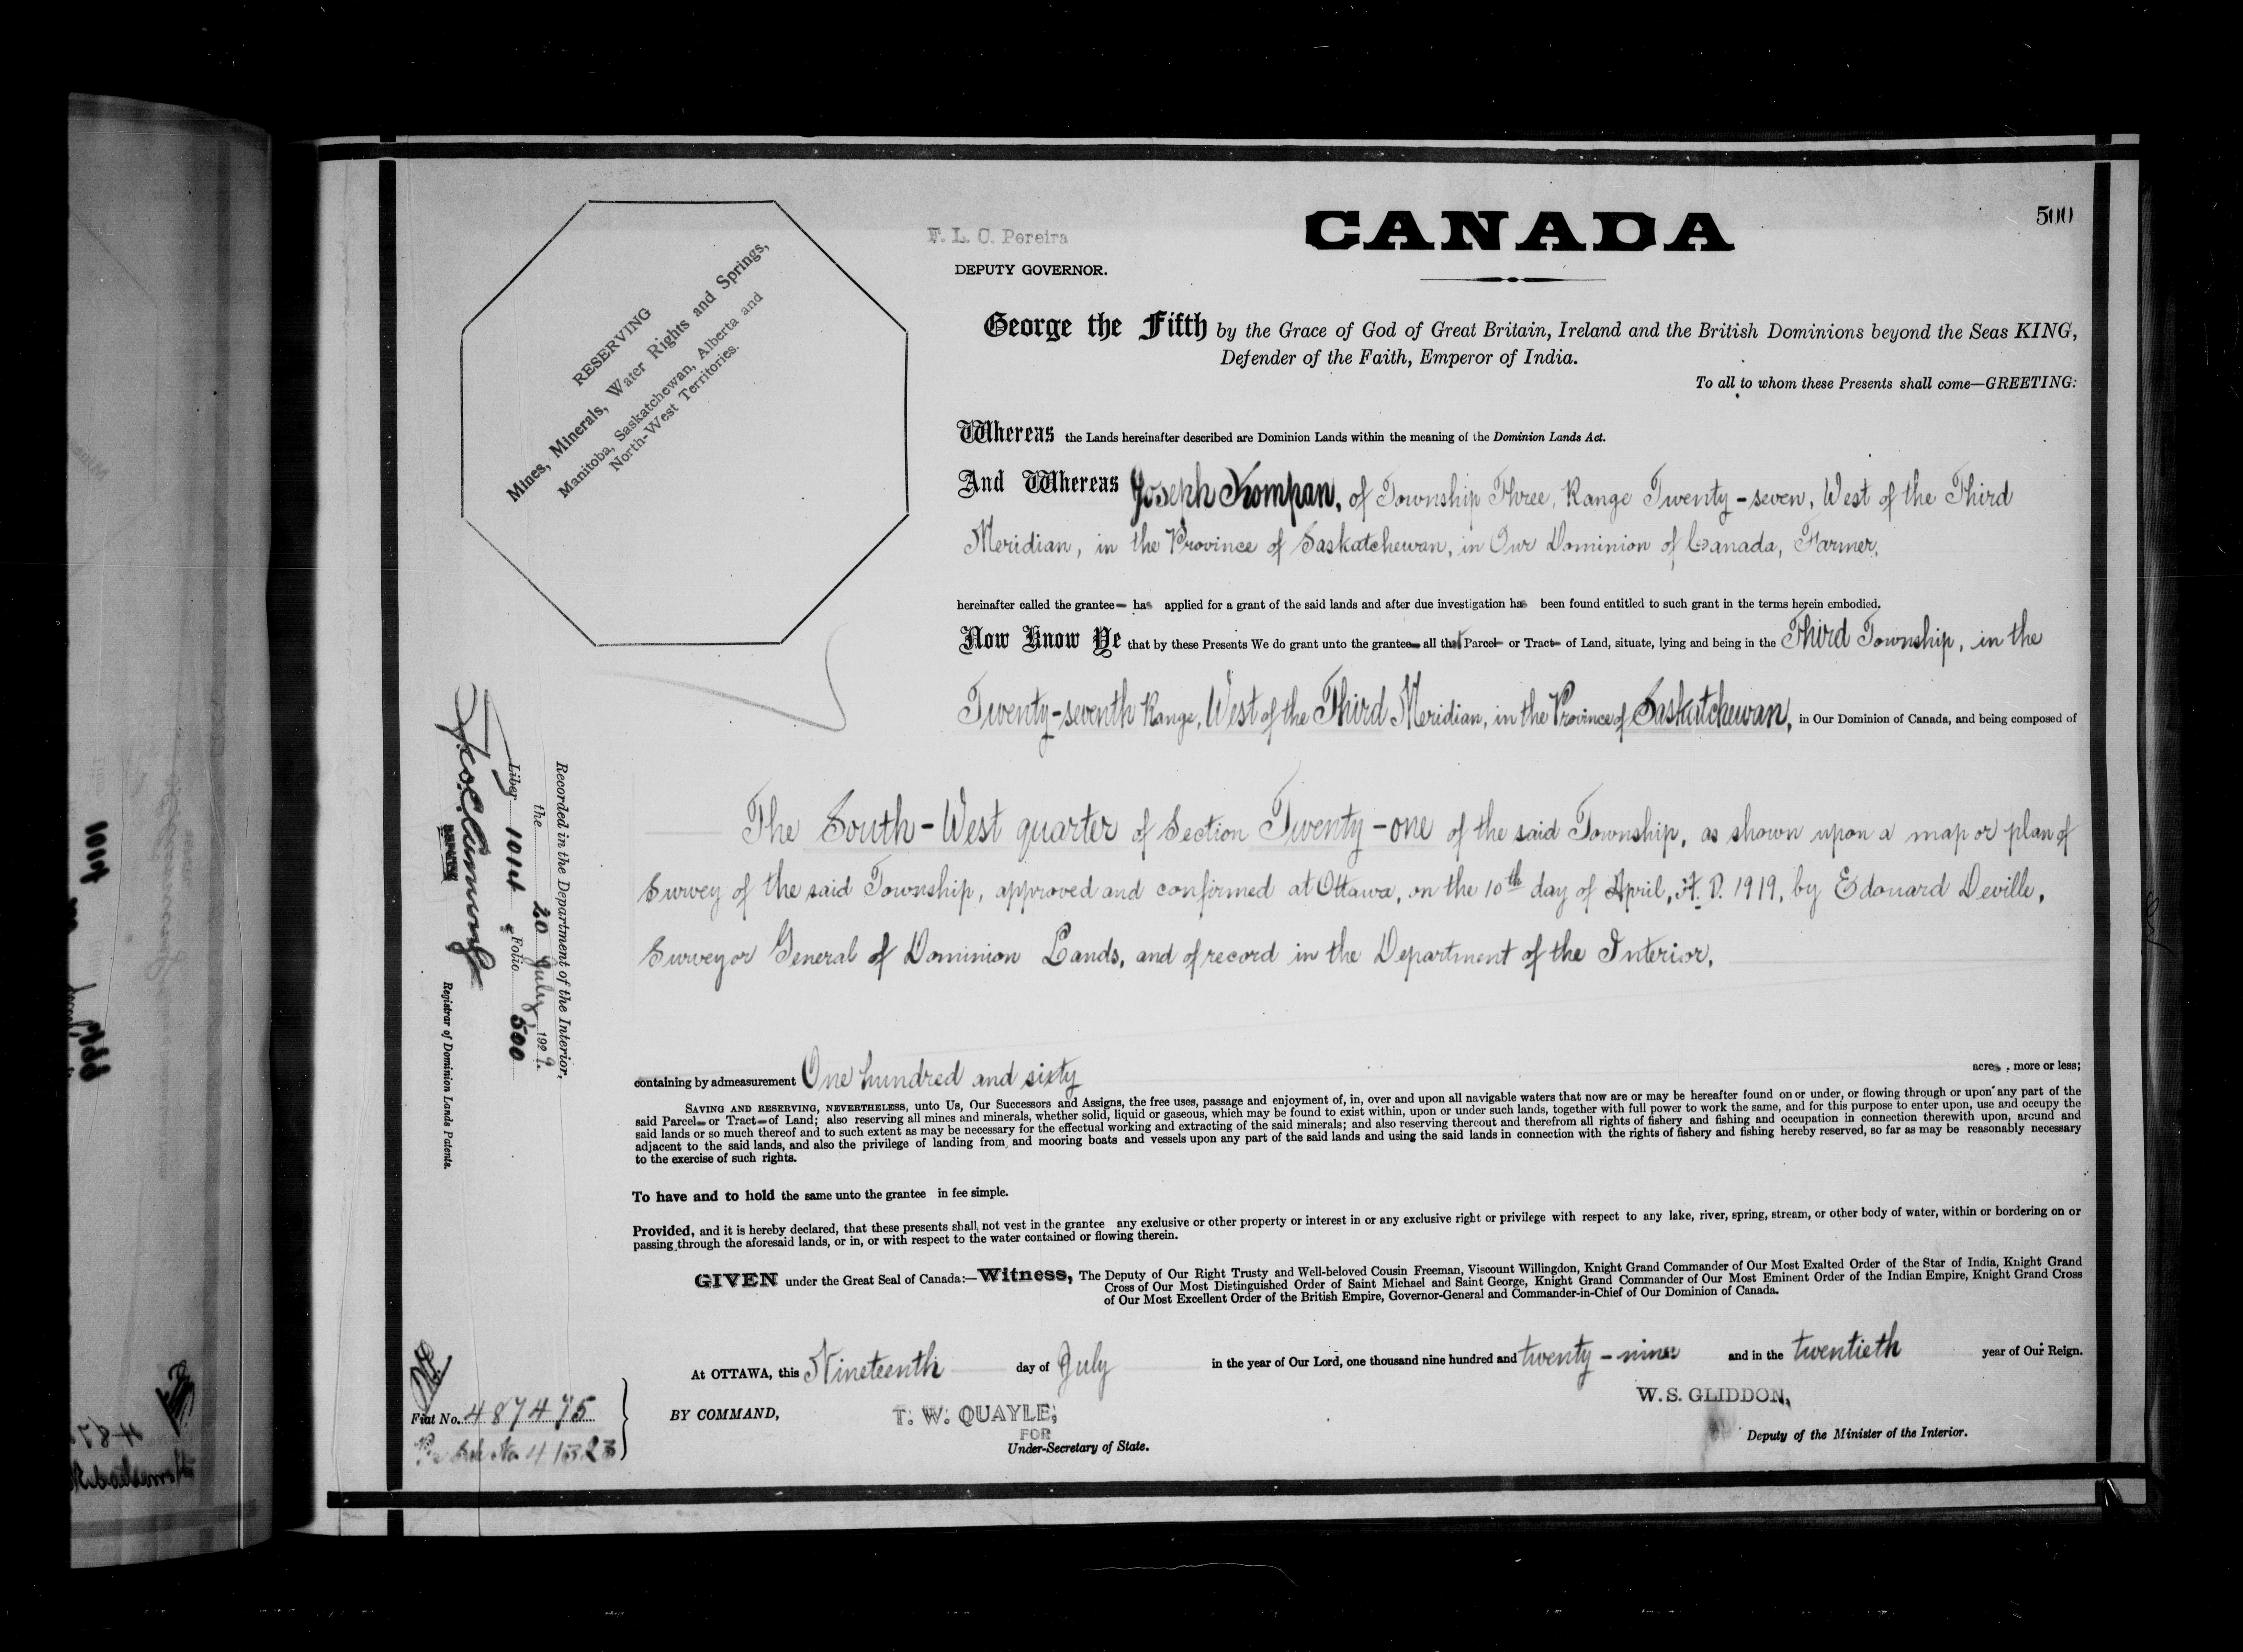 500
CANADA
F. L. C. Pereira
DEPUTY GOVERNOR.
RESERVING
Mines, Minerals, Water Rights and Springs,
Manitoba, Saskatchewan, Alberta and
North-West Territories.
George the Fifth by the Grace of God of Great Britain, Ireland and the British Dominions beyond the Seas KING,
Defender of the Faith, Emperor of India.
To all to whom these Presents shall come—GREETING:
Whereas the Lands hereinafter described are Dominion Lands within the meaning of the Dominion Lands Act.
And Whereas Joseph Kompan, of Township Three, Range Twenty-seven, West of the Third
Meridian, in the Province of Saskatchewan, in Our Dominion of Canada, Farmer,
hereinafter called the grantee has applied for a grant of the said lands and after due investigation has been found entitled to such grant in the terms herein embodied.
Now Know Ye that by these Presents We do grant unto the grantee all that Parcel or Tract of Land, situate, lying and being in the Third Township, in the
Twenty-seventh Range, West of the Third Meridian, in the Province of Saskatchewan, in Our Dominion of Canada, and being composed of
The South-West quarter of Section Twenty-one of the said Township, as shown upon a map or plan of
Survey of the said Township, approved and confirmed at Ottawa, on the 10th day of April, A.D. 1919, by Edouard Deville,
Surveyor General of Dominion Lands, and of record in the Department of the Interior,
containing by admeasurement One hundred and sixty acres, more or less;
SAVING AND RESERVING, NEVERTHELESS, unto Us, Our Successors and Assigns, the free uses, passage and enjoyment of, in, over and upon all navigable waters that now are or may be hereafter found on or under, or flowing through or upon any part of the
said Parcel or Tract of Land; also reserving all mines and minerals, whether solid, liquid or gaseous, which may be found to exist within, upon or under such lands, together with full power to work the same, and for this purpose to enter upon, use and occupy the
said lands or so much thereof and to such extent as may be necessary for the effectual working and extracting of the said minerals; and also reserving thereout and therefrom all rights of fishery and fishing and occupation in connection therewith upon, around and
adjacent to the said lands, and also the privilege of landing from and mooring boats and vessels upon any part of the said lands and using the said lands in connection with the rights of fishery and fishing hereby reserved, so far as may be reasonably necessary
to the exercise of such rights.
To have and to hold the same unto the grantee in fee simple.
Provided, and it is hereby declared, that these presents shall not vest in the grantee any exclusive or other property or interest in or any exclusive right or privilege with respect to any lake, river, spring, stream, or other body of water, within or bordering on or
passing through the aforesaid lands, or in, or with respect to the water contained or flowing therein.
GIVEN under the Great Seal of Canada:—Witness, The Deputy of Our Right Trusty and Well-beloved Cousin Freeman, Viscount Willingdon, Knight Grand Commander of Our Most Exalted Order of the Star of India, Knight Grand
Cross of Our Most Distinguished Order of Saint Michael and Saint George, Knight Grand Commander of Our Most Eminent Order of the Indian Empire, Knight Grand Cross
of Our Most Excellent Order of the British Empire, Governor-General and Commander-in-Chief of Our Dominion of Canada.
At OTTAWA, this Nineteenth day of July in the year of Our Lord, one thousand nine hundred and twenty-nine and in the twentieth year of Our Reign.
BY COMMAND,
T. W. QUAYLE,
FOR
Under-Secretary of State.
W. S. GLIDDON,
Deputy of the Minister of the Interior.
Fiat No. 487475
No. 41323
Recorded in the Department of the Interior,
the 20 July, 1929.
Liber 1014 Folio 500
Registrar of Dominion Lands Patents.